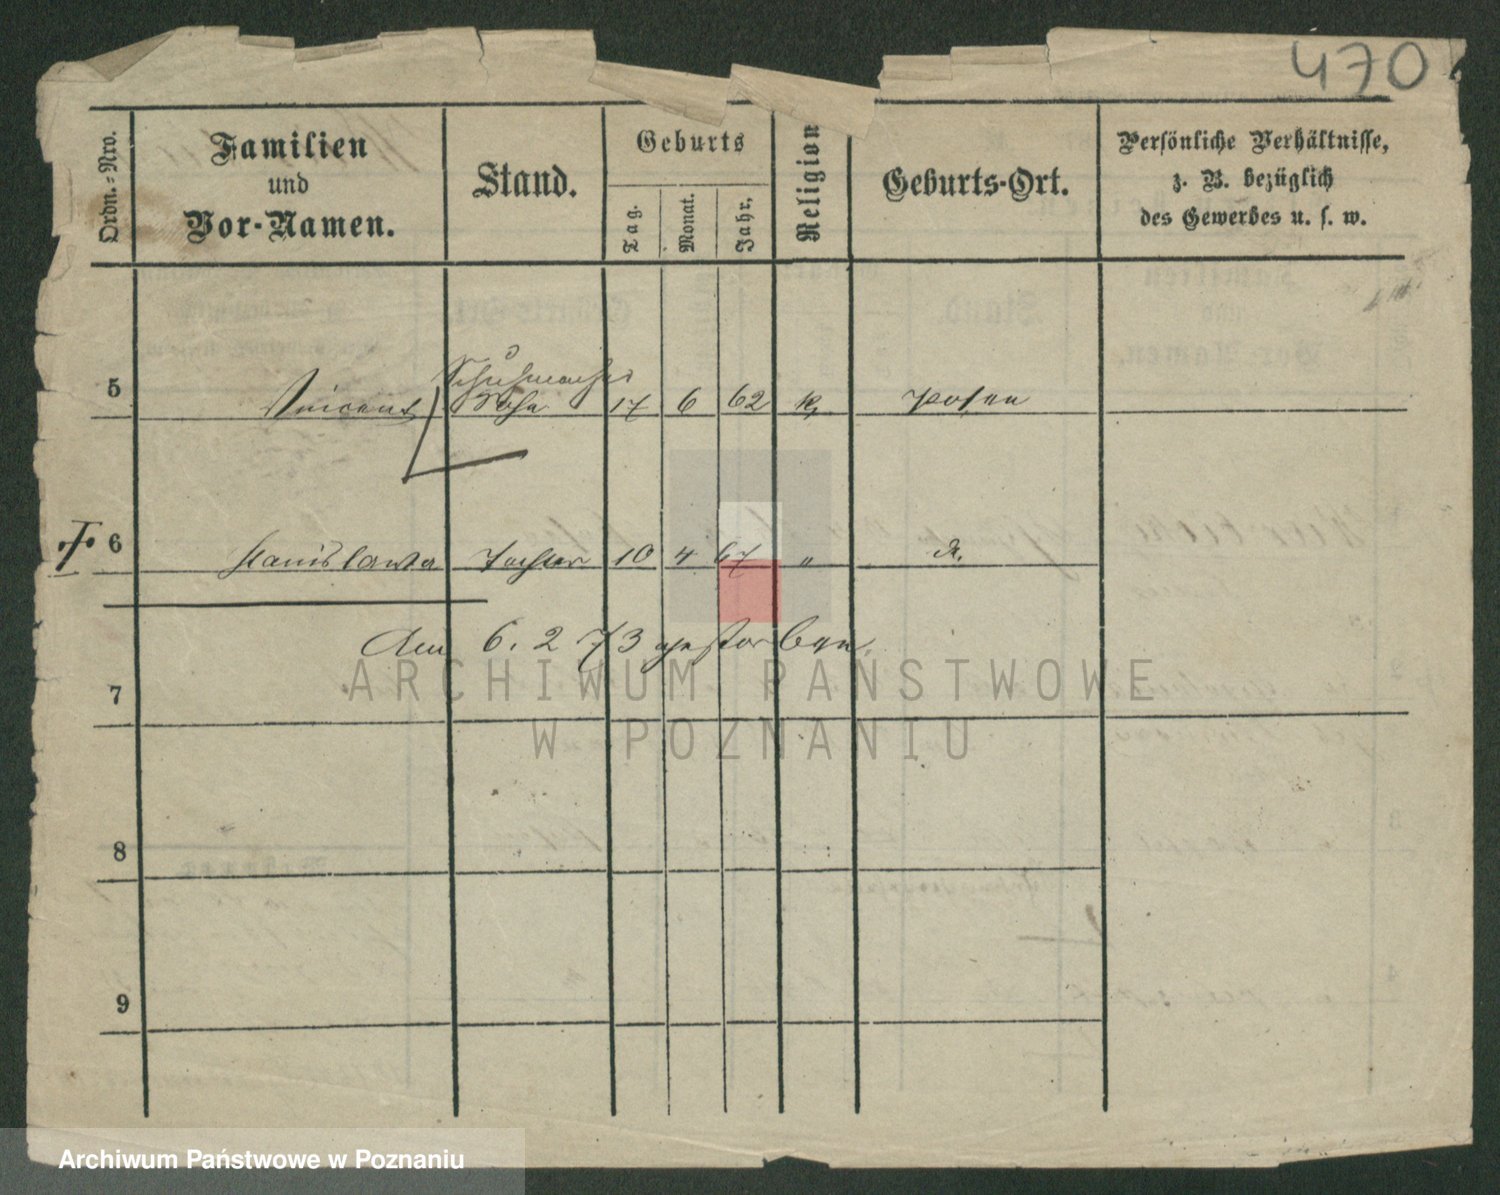 470
Ordn.-Nro.
Familien
und
Vor-Namen.
Stand.
Geburts
Tag.
Monat.
Jahr.
Religion
Geburts-Ort.
Persönliche Verhältnisse,
z. B. bezüglich
des Gewerbes u. s. w.
Schuhmacher
5 Vincent Sohn 17 6 62 K. Posen
6 Stanislawa Tochter 10 4 67 " d.
den 6. 2 73 gestorben.
7
ARCHIWUM PAŃSTWOWE
W POZNANIU
8
9
Archiwum Państwowe w Poznaniu